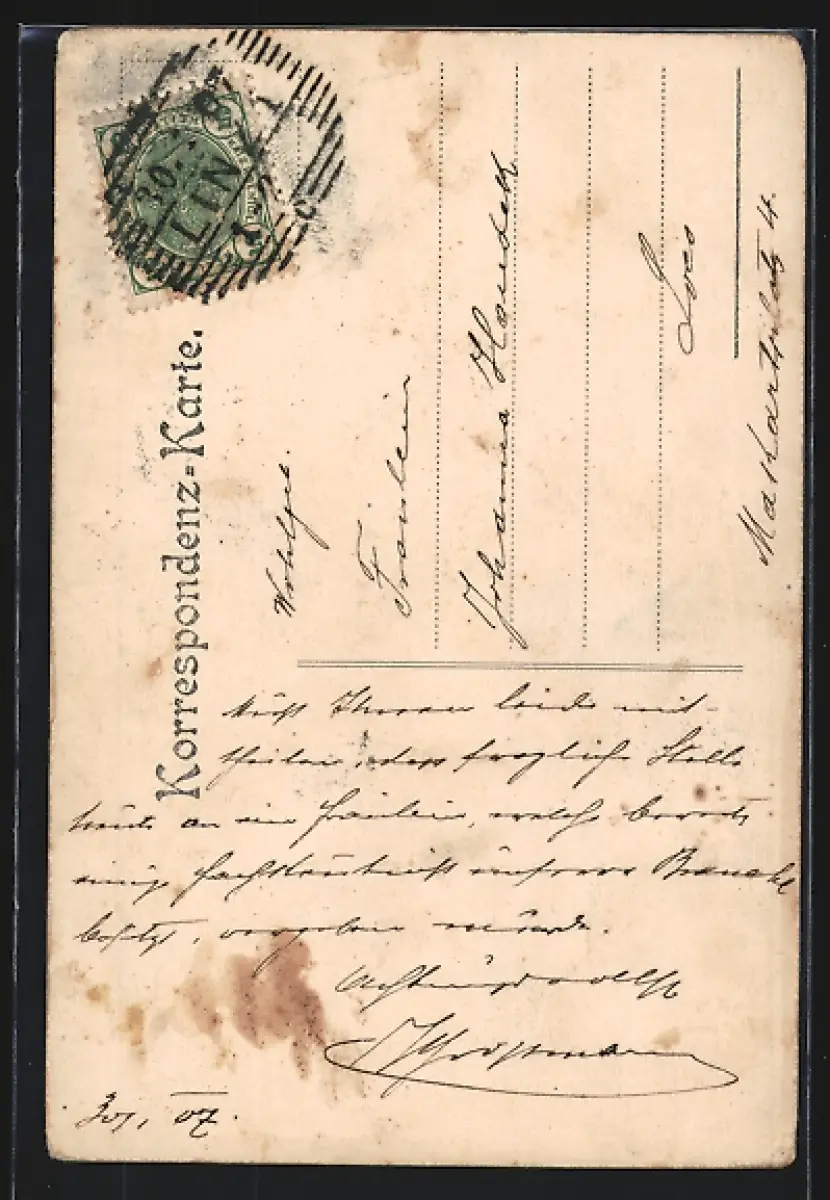 Korrespondenz-Karte.
30.
LIN
Wohlgeb.
Fräulein
Johanna
Loco
Makartplatz 4.
Muß Ihnen leider mit-
theilen, dass fragliche Stelle
heute an ein Fräulein, welche bereits
einige Fachkenntniß unserer Branche
besitzt, vergeben wurde.
Achtungsvollst
07.